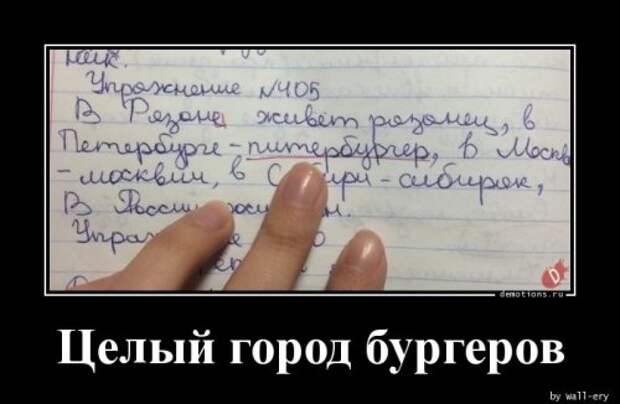 наук.
Упражнение №405
В Рязане живёт рязанец, в
Петербурге - питербургер, в Москве
- москвич, в Сибири - сибиряк,
В России
demotions.ru
Целый город бургеров
by wall-ery